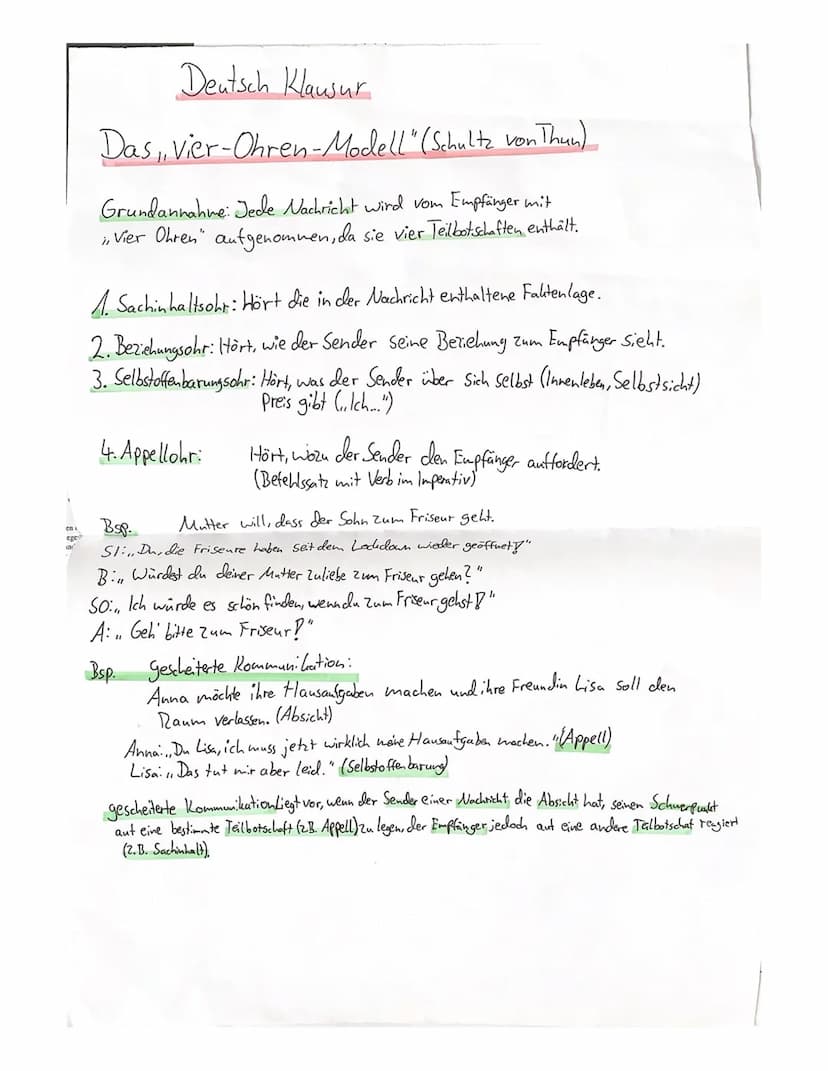 Deutsch Klausur
Das „Vier-Ohren-Modell" (Schultz von Thun)
Grundannahme: Jede Nachricht wird vom Empfänger mit
„Vier Ohren" aufgenommen, da sie vier Teilbotschaften enthält.
1. Sachinhaltsohr: Hört die in der Nachricht enthaltene Faktenlage.
2. Beziehungsohr: Hört, wie der Sender seine Beziehung zum Empfänger sieht.
3. Selbstoffenbarungsohr: Hört, was der Sender über sich selbst (Innenleben, Selbstsicht)
Preis gibt („Ich...")
4. Appellohr: Hört, wozu der Sender den Empfänger auffordert.
(Befehlssatz mit Verb im Imperativ)
Bsp. Mutter will, dass der Sohn zum Friseur geht.
SI: „Du, die Friseure haben seit dem Lockdown wieder geöffnet!"
B: „Würdest du deiner Mutter zuliebe zum Friseur gehen?"
SO: „Ich würde es schön finden, wenn du zum Friseur gehst!"
A: „Geh' bitte zum Friseur!"
Bsp. Gescheiterte Kommunikation:
Anna möchte ihre Hausaufgaben machen und ihre Freundin Lisa soll den
Raum verlassen. (Absicht)
Anna: „Du Lisa, ich muss jetzt wirklich meine Hausaufgaben machen." (Appell)
Lisa: „Das tut mir aber leid." (Selbstoffenbarung)
gescheiterte Kommunikation liegt vor, wenn der Sender einer Nachricht die Absicht hat, seinen Schwerpunkt
auf eine bestimmte Teilbotschaft (z.B. Appell) zu legen, der Empfänger jedoch auf eine andere Teilbotschaft reagiert
(z.B. Sachinhalt).